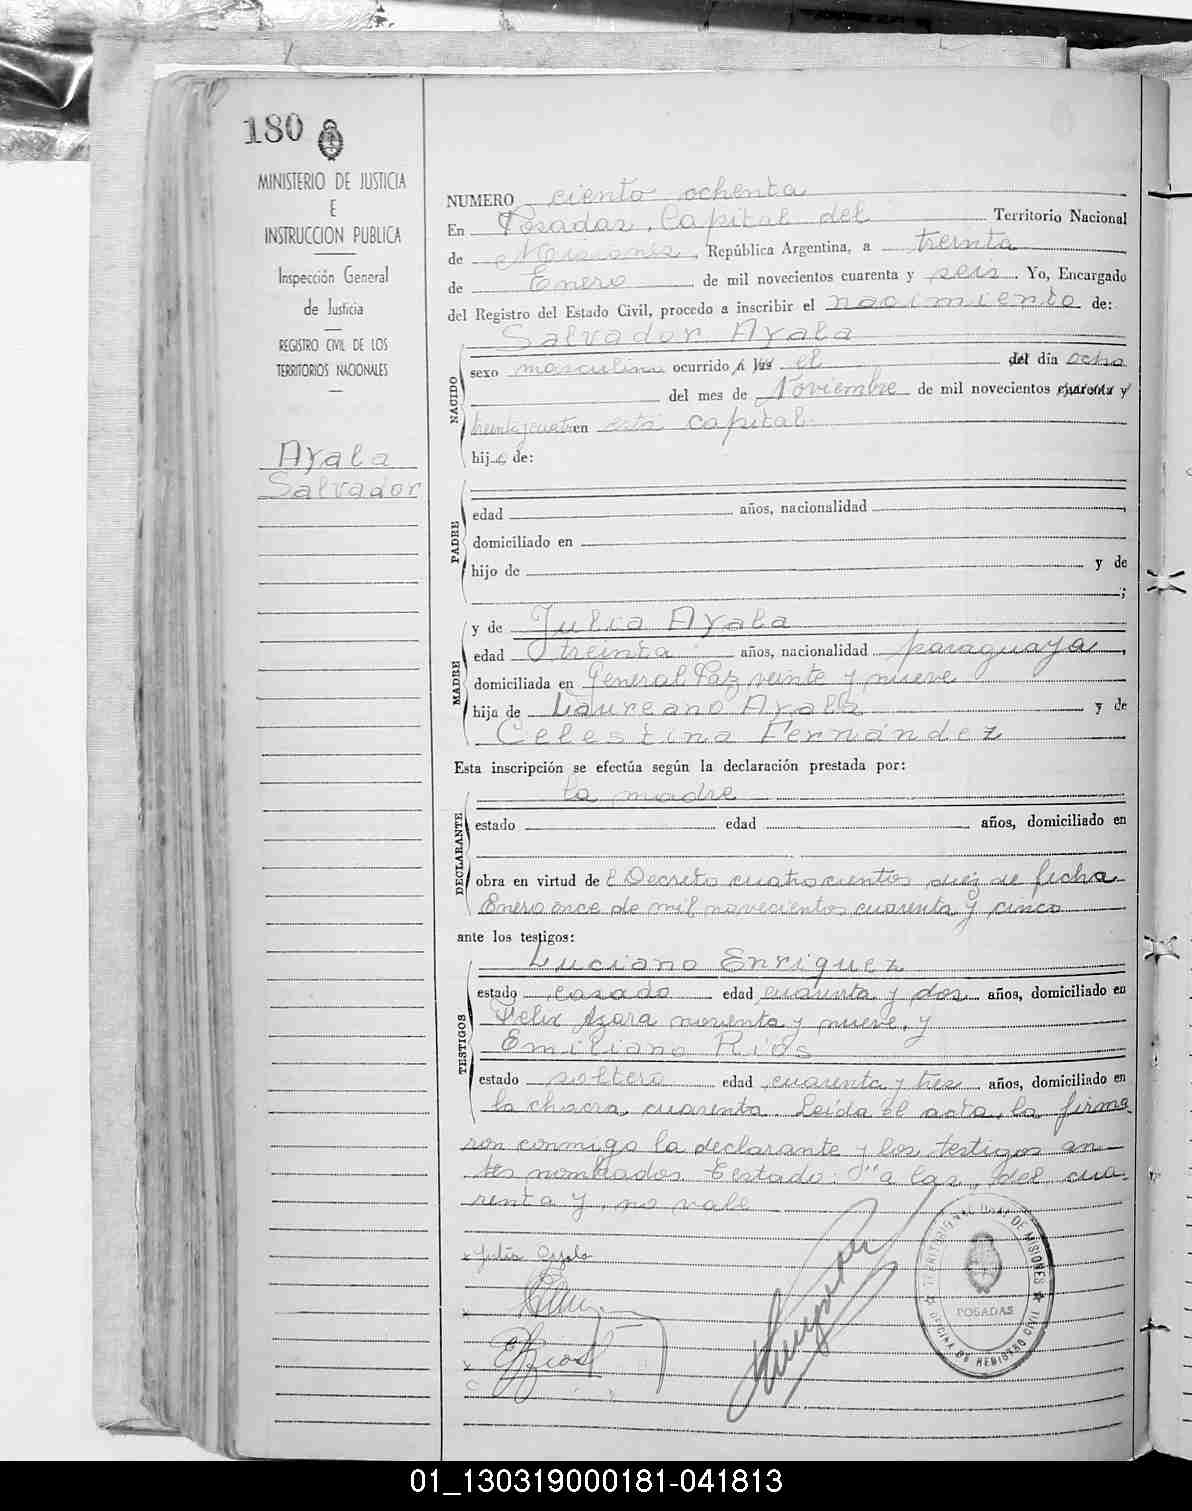 180
MINISTERIO DE JUSTICIA
E
INSTRUCCION PUBLICA
Inspección General
de Justicia
REGISTRO CIVIL DE LOS
TERRITORIOS NACIONALES
Ayala
Salvador
NUMERO ciento ochenta
En Posadas, Capital del Territorio Nacional
de Misiones, República Argentina, a treinta
de Enero de mil novecientos cuarenta y seis. Yo, Encargado
del Registro del Estado Civil, procedo a inscribir el nacimiento de:
Salvador Ayala
NACIDO
sexo masculino ocurrido a las el del día ocho
del mes de Noviembre de mil novecientos cuarenta y
treinta y cuatro en esta capital.
hijo de:
PADRE
edad años, nacionalidad ,
domiciliado en
hijo de y de
;
MADRE
y de Julia Ayala
edad treinta años, nacionalidad paraguaya,
domiciliada en General Paz veinte y nueve
hija de Laureano Ayala y de
Celestina Fernández
Esta inscripción se efectúa según la declaración prestada por:
DECLARANTE
la madre
estado edad años, domiciliado en
obra en virtud de el Decreto cuatrocientos diez de fecha
Enero once de mil novecientos cuarenta y cinco
ante los testigos:
TESTIGOS
Luciano Enriquez
estado casado edad cuarenta y dos años, domiciliado en
Felix Azara noventa y nueve, y
Emiliano Rios
estado soltero edad cuarenta y tres años, domiciliado en
la chacra cuarenta. Leída el acta, la firma
ron conmigo la declarante y los testigos an-
tes nombrados. Testado: "a las, del cua-
renta y, no vale
x Julia Ayala
x
x E Rios
TERRITORIO NACIONAL DE MISIONES
POSADAS
OFICINA DE REGISTRO CIVIL
01_130319000181-041813